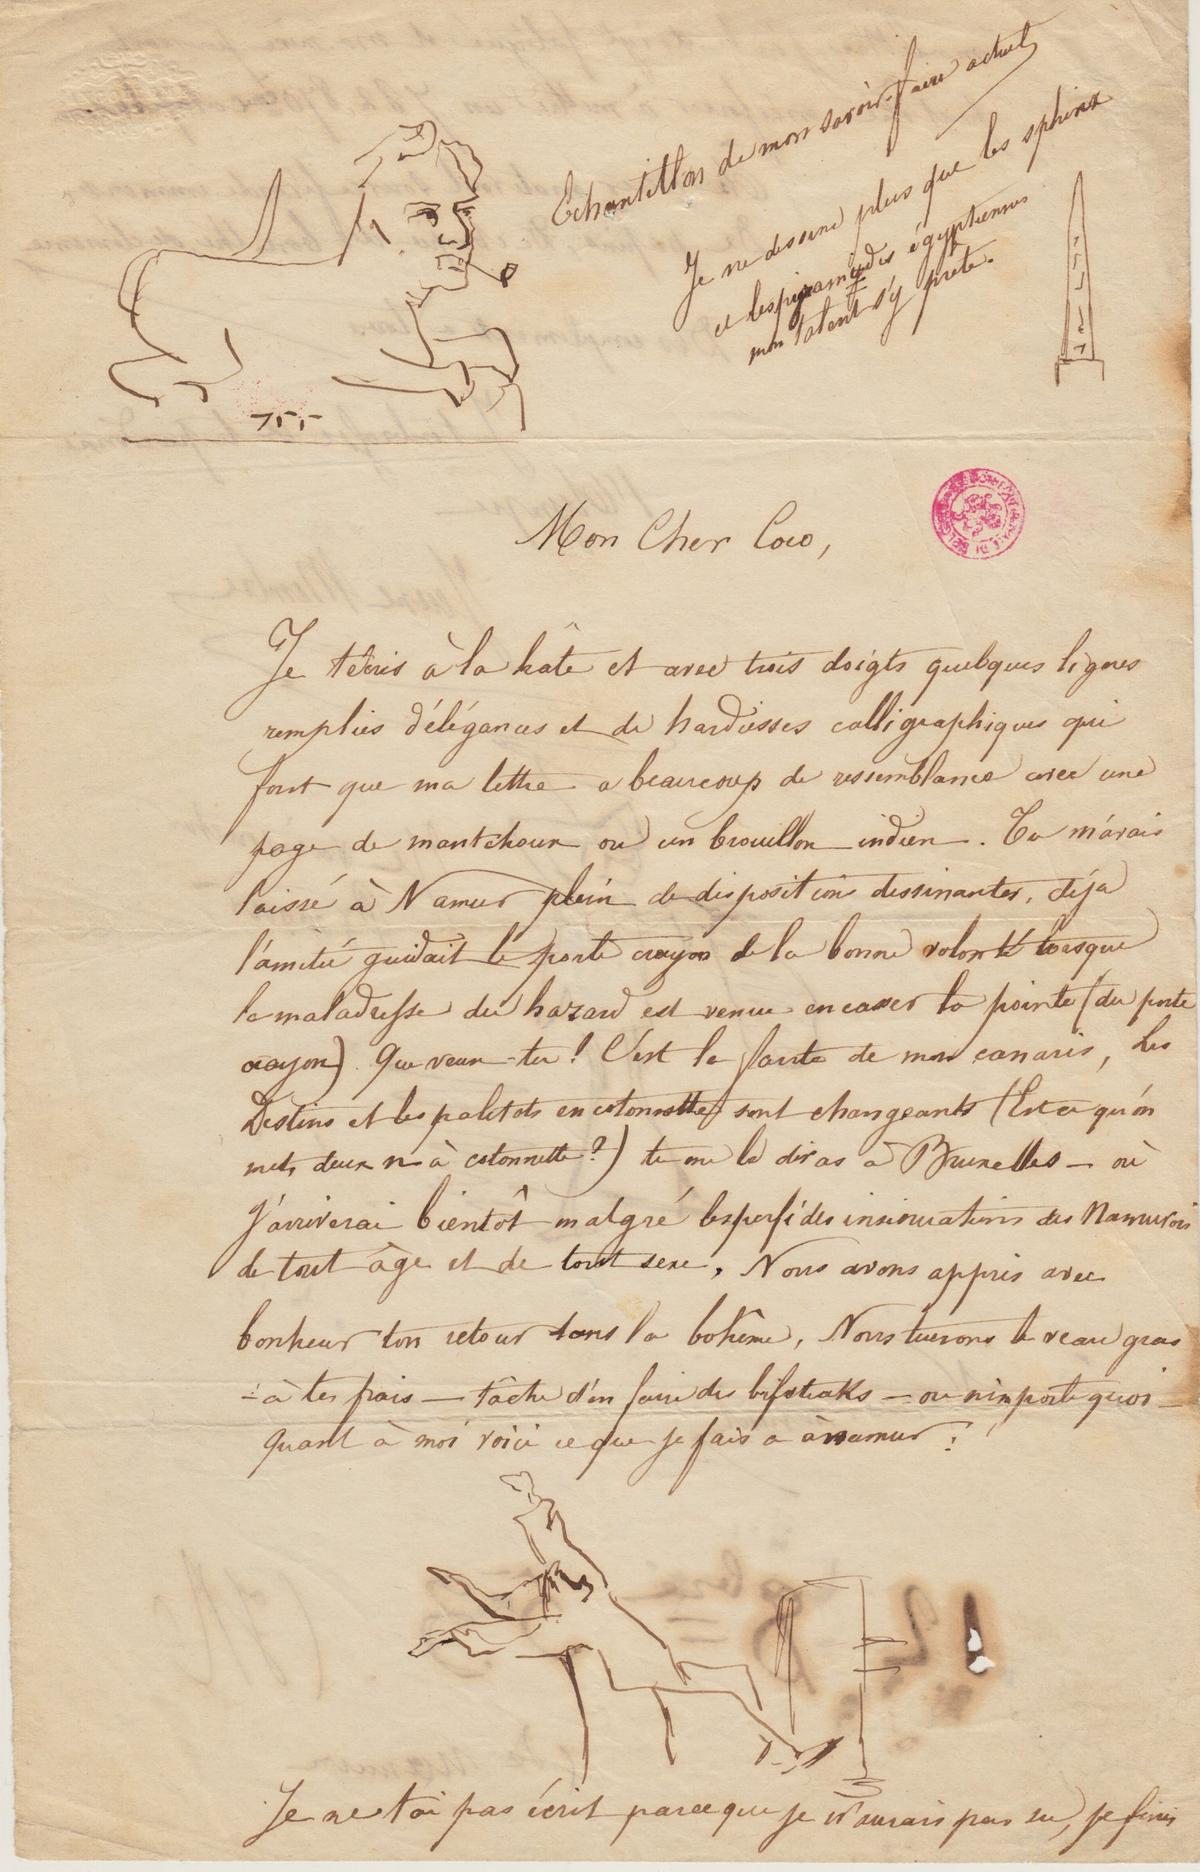 Echantillon de mon savoir-faire actuel
Je ne dessine plus que les sphinx
et les piramydes égyptiennes
mon talent s'y prete.
Mon Cher Coco,
Je t'écris à la hâte et avec trois doigts quelques lignes
remplies d'élégances et de hardiesses calligraphiques qui
font que ma lettre a beaucoup de ressemblance avec une
page de mantchoux ou un brouillon indien. Tu m'avais
laissé à Namur plein de dispositions dessinantes, déja
l'amitié guidait le porte crayon de la bonne volonté lorsque
la maladresse du hazard est venue en casser la pointe (du porte
crayon). Que veux-tu! C'est la faute de mon canaris, les
Destins et les paletots en cotonnette sont changeants (Est ce qu'on
met deux n à cotonnette?) tu me le diras à Bruxelles – où
j'arriverai bientôt malgré les perfides insinuations des Namurois
de tout âge et de tout sexe, Nous avons appris avec
bonheur ton retour dans la bohême, Nous tuerons le veau gras
– à tes frais – tâche d'en faire des bifsteaks – ou n'importe quoi –
Quant à moi voici ce que je fais a à namur :
Je ne t'ai pas écrit parceque je n'aurais pas su, je finis